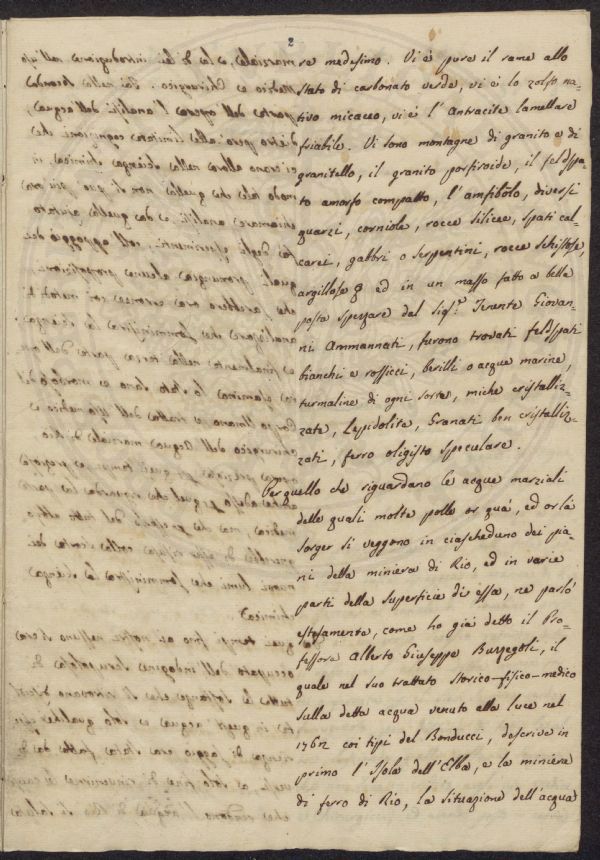 2
re medesimo. Vi è pure il rame allo
stato di carbonato verde, vi è lo zolfo na-
tivo micaceo, vi è l'Antracite lamellare
friabile. Vi sono montagne di granito e di
granitello, il granito porfiroide, il feldspa-
to amorfo compatto, l'amfibolo, diversi
quarzi, corniole, rocce silicee, spati cal-
carei, gabbri o serpentini, rocce schistose,
argillose & ed in un masso fatto a bella
posta spezzare dal Sig.r Tenente Giovan-
ni Ammannati, furono trovati feldspati
bianchi e rossicci, berilli o acque marine,
turmaline di ogni sorte, miche cristalliz-
zate, Lepidolite, Granati ben cristalliz-
zati, ferro oligisto speculare.
Per quello che riguardano le acque marziali
delle quali molte polle or quà, ed or là
sorger si veggono in ciascheduno dei pia-
ni della miniera di Rio, ed in varie
parti della superficie di essa, ne parlò
estesamente, come ho già detto il Pro-
fessore Alberto Giuseppe Buzzegoli, il
quale nel suo trattato storico-fisico-medico
sulla detta acqua venuto alla luce nel
1762 coi tipi del Bonducci, descrive in
primo l'Isola dell'Elba, e la miniera
di ferro di Rio, la situazione dell'acqua